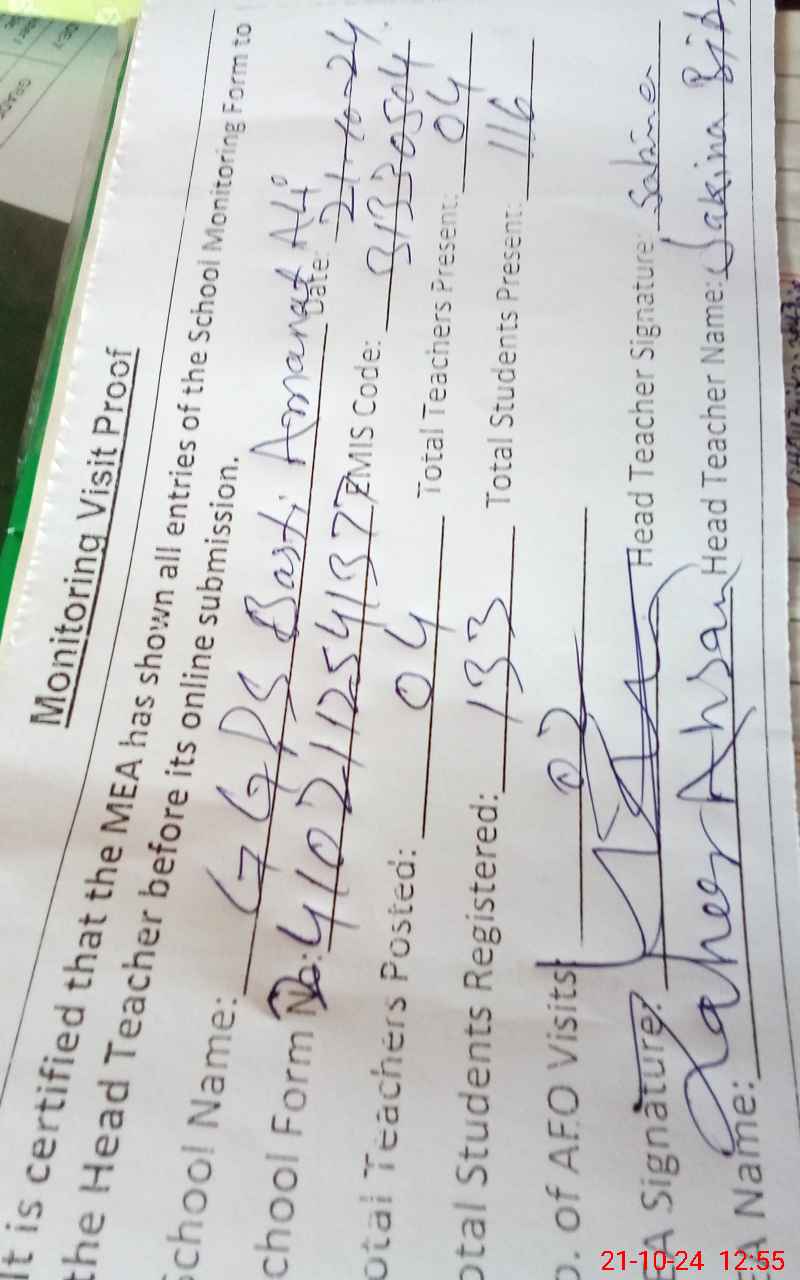 Monitoring Visit Proof
It is certified that the MEA has shown all entries of the School Monitoring Form to
the Head Teacher before its online submission.
School Name: GGPS Basti Amanat Ali Date: 21-10-24.
chool Form No: EMIS Code: 31330504
otal Teachers Posted: 04 Total Teachers Present: 04
otal Students Registered: 133 Total Students Present: 116
o. of AEO Visits: 02
A Signature: Head Teacher Signature: Sakina
A Name: Zaheer Ahsan Head Teacher Name: Sakina Bibi
21-10-24 12:55